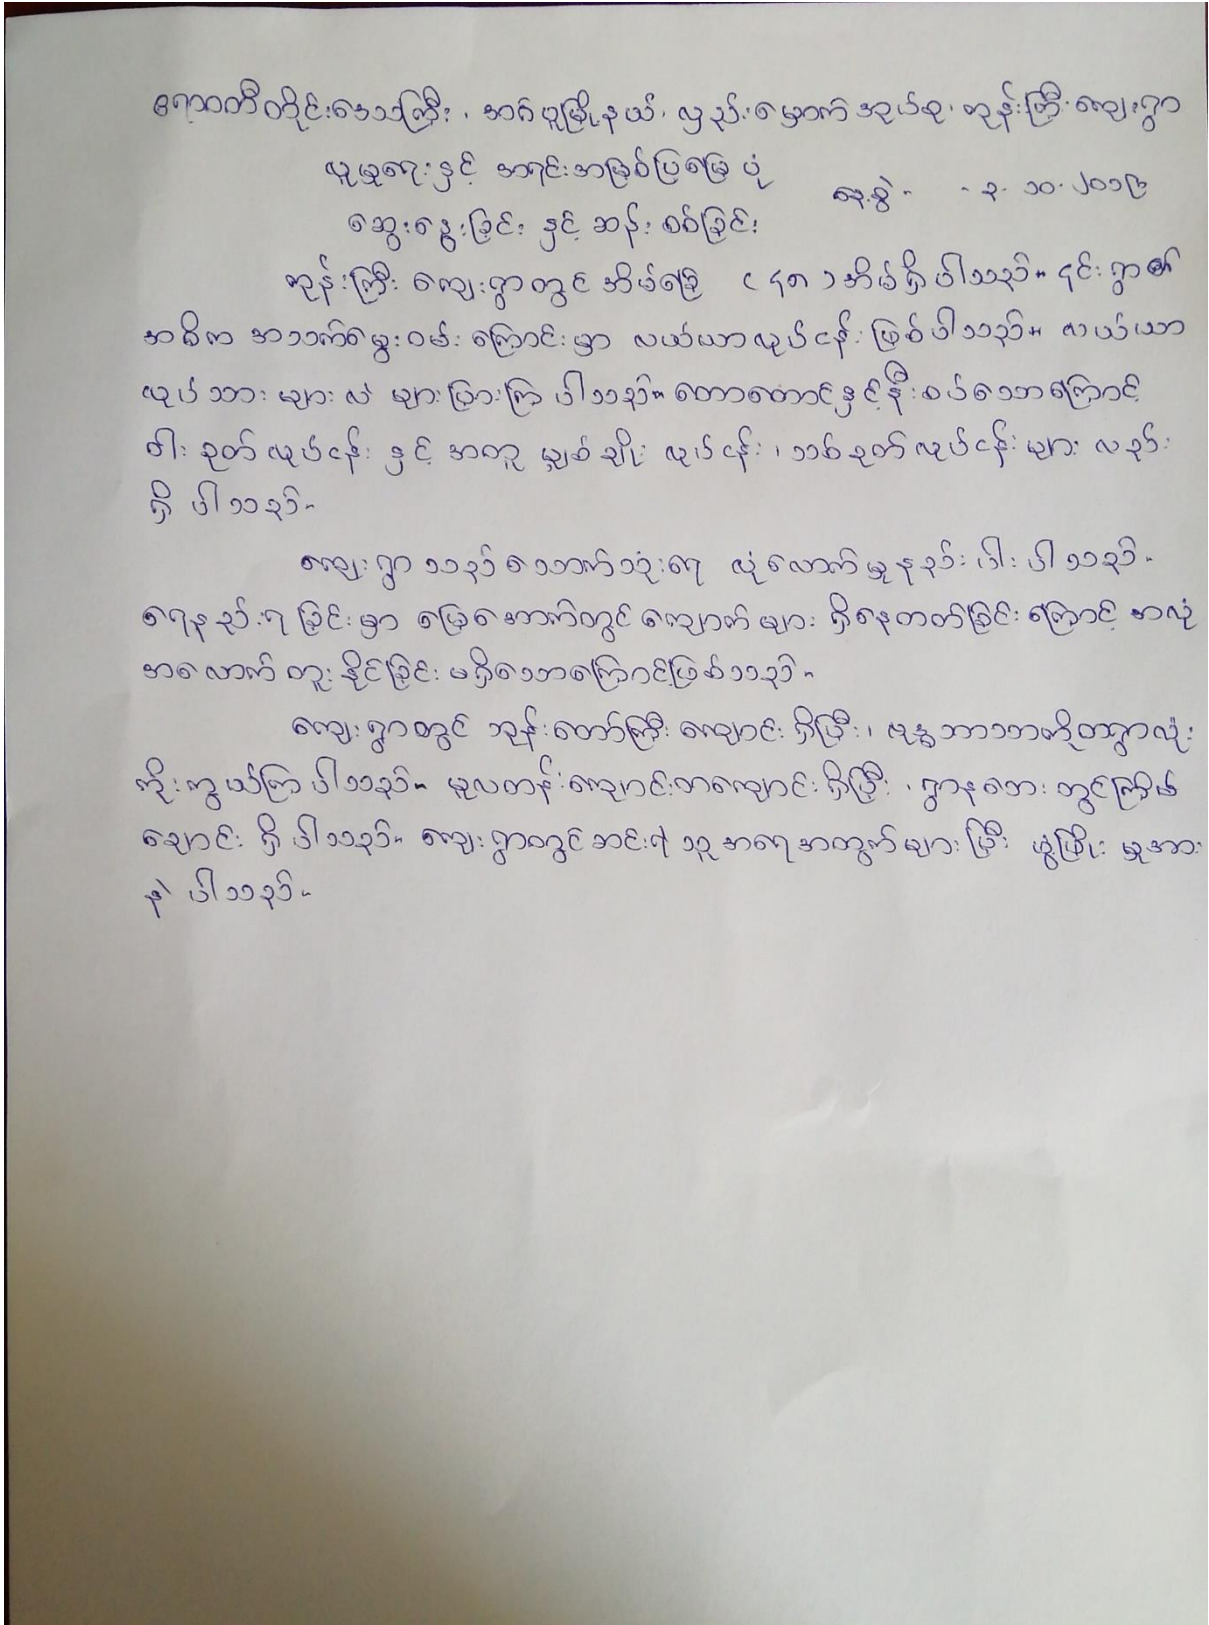 ဧရာဝတီတိုင်းဒေသကြီး၊ အင်္ဂပူမြို့နယ်၊ လှည်းမှောက်အုပ်စု၊ ကုန်းကြီးကျေးရွာ
လူမှုရေးနှင့် အရင်းအမြစ်ပြမြေပုံ
နေ့စွဲ - - ၃. ၁၀. ၂၀၁၉
ဆွေးနွေးခြင်း နှင့် ဆန်းစစ်ခြင်း
ကုန်းကြီး ကျေးရွာတွင် အိမ်ခြေ ( ၄၈ ) အိမ်ရှိပါသည်။ ၎င်းရွာ၏
အဓိက အသက်မွေးဝမ်းကြောင်းမှာ လယ်ယာလုပ်ငန်းဖြစ်ပါသည်။ လယ်ယာ
လုပ်သားများလဲ များပြားကြပါသည်။ တောတောင်နှင့်နီးစပ်သောကြောင့်
ဝါးခုတ်လုပ်ငန်း နှင့် အကူမျှစ်ချိုးလုပ်ငန်း၊ သစ်ခုတ်လုပ်ငန်းများလည်း
ရှိပါသည်။
ကျေးရွာသည်သောက်သုံးရေ လုံလောက်မှုနည်းပါးပါသည်။
ရေနည်းရခြင်းမှာ မြေအောက်တွင်ကျောက်များ ရှိနေတတ်ခြင်းကြောင့် အလုံ
အလောက်တူးနိုင်ခြင်းမရှိသောကြောင့်ဖြစ်သည်။
ကျေးရွာတွင် ဘုန်းတော်ကြီးကျောင်းရှိပြီး၊ ဗုဒ္ဓဘာသာကိုတရွာလုံး
ကိုးကွယ်ကြပါသည်။ မူလတန်းကျောင်းတကျောင်းရှိပြီး၊ ရွာနဘေးတွင်ကြိမ်
ချောင်းရှိပါသည်။ ကျေးရွာတွင်ဆင်းရဲသူအရေအတွက်များပြီး ဖွံ့ဖြိုးမှုအား
နဲပါသည်။